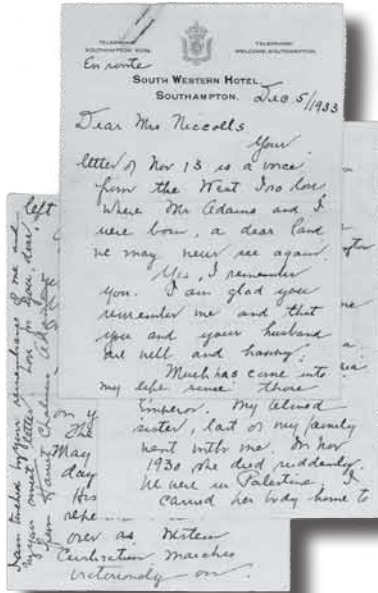 TELEPHONE
SOUTHAMPTON
TELEGRAMS
WELCOME, SOUTHAMPTON.
En route
SOUTH WESTERN HOTEL,
SOUTHAMPTON.
Dec 5/1933
Dear Mrs Niccolls
Your
letter of Nov 13 is a voice
from the West I so love
where Mr Adams and I
were born, a dear land
we may never see again.
Yes, I remember
you. I am glad you
remember me and that
you and your husband
are well and happy.
Much has come into
my life since those
Emperor. My beloved
sister, last of my family
went with me. In Nov
1930 she died suddenly.
We were in Palestine. I
carried her body home to
left
on y
The
May
day
His
repe
over as Western
Civilization marches
victoriously on.
I am touched by your remembrance of me and
your sweet letter. Love for you, dear,
from Harriet Chalmers Adams